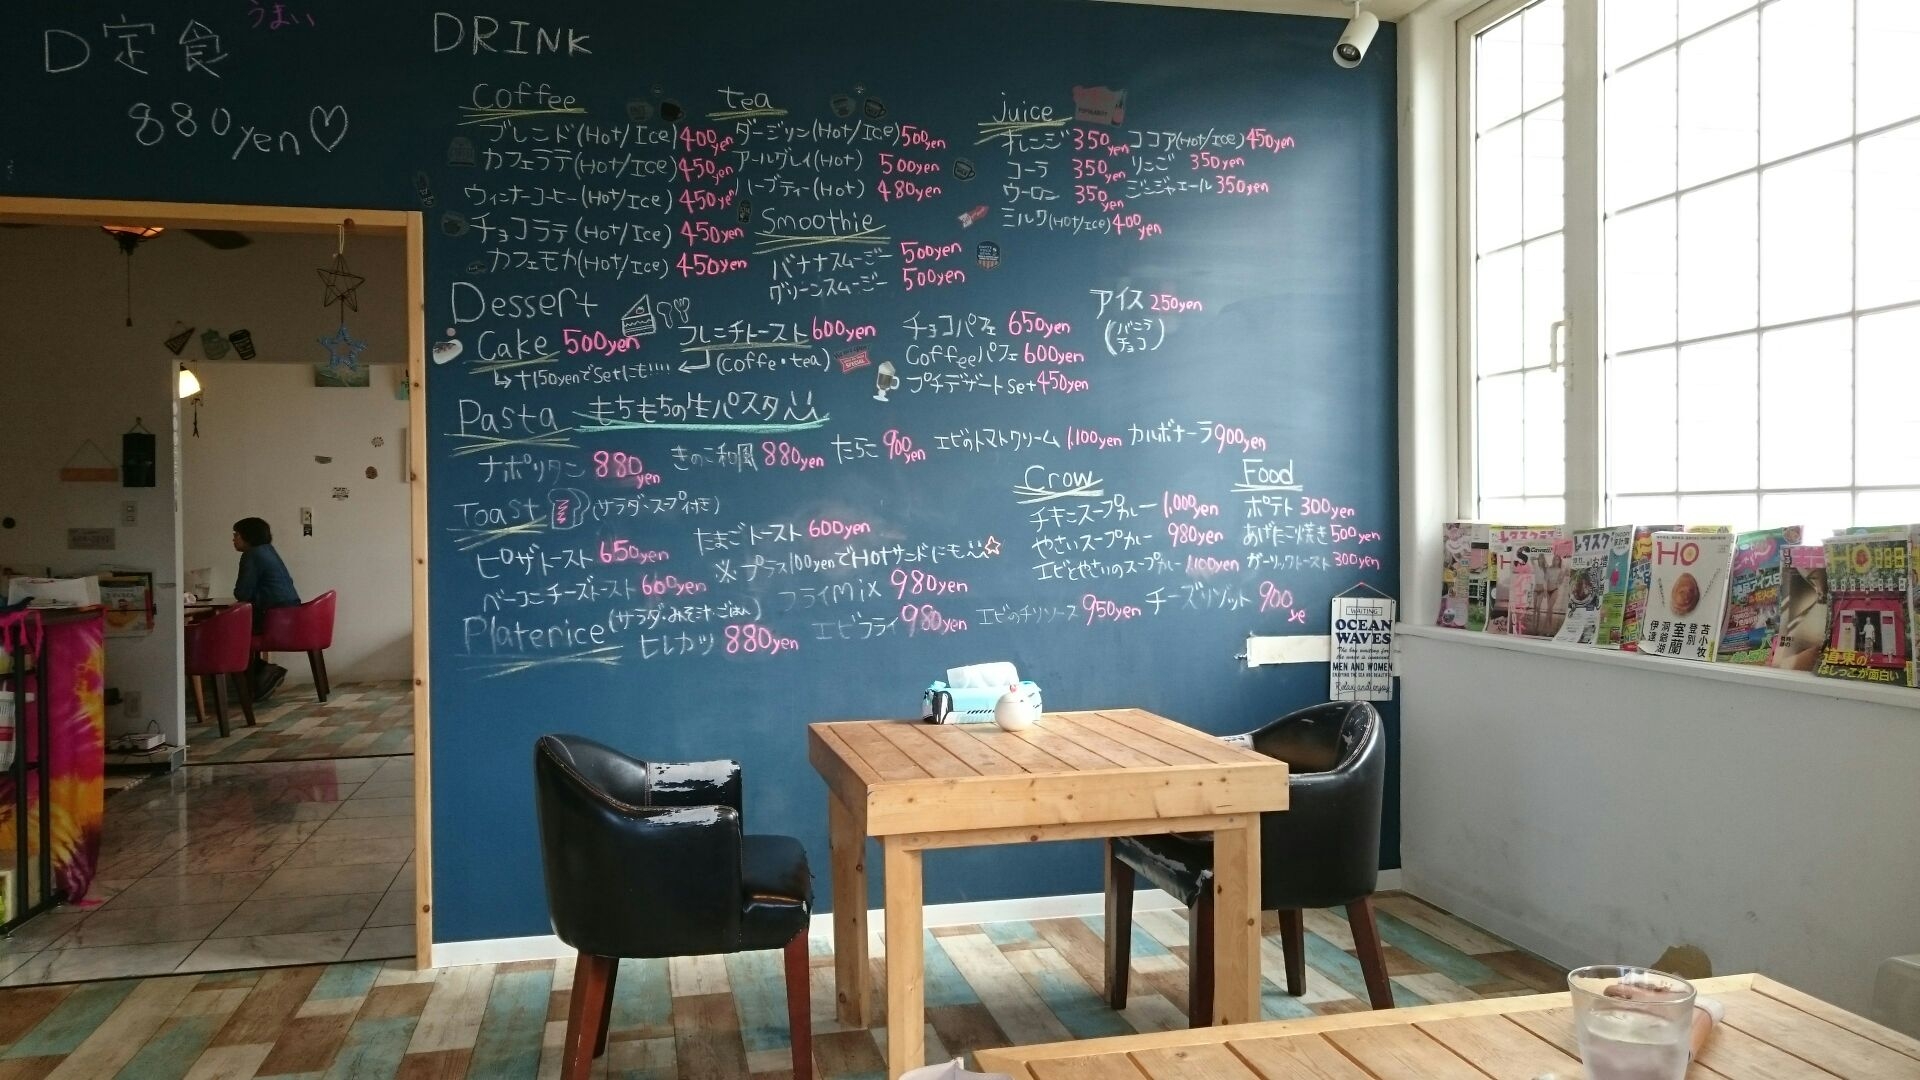 D定食
うまい
880yen♡
DRINK
Coffee
ブレンド(Hot/Ice) 400yen
カフェラテ(Hot/Ice) 450yen
ウィンナーコーヒー(Hot/Ice) 450yen
チョコラテ(Hot/Ice) 450yen
カフェモカ(Hot/Ice) 450yen
tea
ダージリン(Hot/Ice) 500yen
アールグレイ(Hot) 500yen
ハーブティー(Hot) 480yen
Smoothie
バナナスムージー 500yen
グリーンスムージー 500yen
juice
オレンジ 350yen ココア(Hot/Ice) 450yen
コーラ 350yen りんご 350yen
ウーロン 350yen ジンジャエール 350yen
ミルク(Hot/Ice) 400yen
Dessert
Cake 500yen フレンチトースト 600yen
↳ +150yenでSetにも!!!! (Coffe・tea)
チョコパフェ 650yen
Coffeeパフェ 600yen
プチデザートset 450yen
アイス 250yen
(バニラ
チョコ)
Pasta もちもちの生パスタ
ナポリタン 880yen きのこ和風 880yen たらこ 900yen エビのトマトクリーム 1,100yen カルボナーラ 900yen
Toast (サラダ・スープ付き)
ピザトースト 650yen たまごトースト 600yen
※プラス100yenでHotサンドにも
ベーコンチーズトースト 660yen
Crow
チキンスープカレー 1,000yen
やさいスープカレー 980yen
エビとやさいのスープカレー 1,100yen
Food
ポテト 300yen
あげたこ焼き 500yen
ガーリックトースト 300yen
Platerice (サラダ・みそ汁・ごはん)
ヒレカツ 880yen フライmix 980yen
エビフライ 980yen エビのチリソース 950yen チーズリゾット 900ye
WAITING
OCEAN
WAVES
MEN AND WOMEN
Relax and enjoy
HO
苫小牧
登別
室蘭
洞爺湖
伊達
HO
道東の
はしっこが面白い